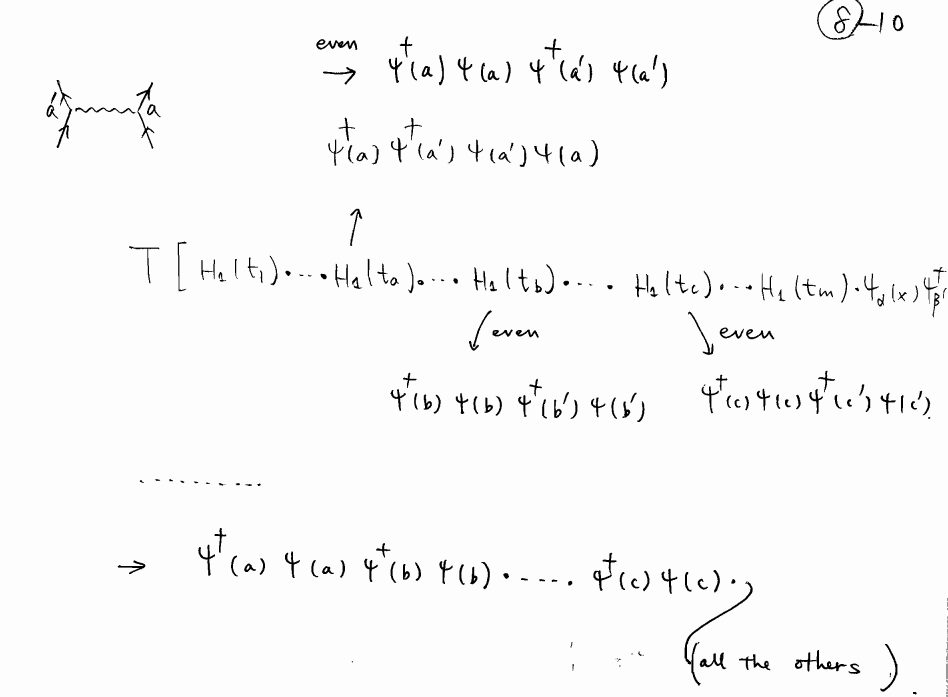 ⑧-10
even
→ ψ†(a) ψ(a) ψ†(a′) ψ(a′)
a′ a
ψ†(a) ψ†(a′) ψ(a′) ψ(a)
↑
T [ H₁(t₁)·...·H₁(ta)·... H₁(tb)·... · H₁(tc)·...H₁(tm)·ψα(x)ψ†β′
even even
ψ†(b) ψ(b) ψ†(b′) ψ(b′) ψ†(c) ψ(c) ψ†(c′) ψ(c′)
..........
→ ψ†(a) ψ(a) ψ†(b) ψ(b)·..... ψ†(c) ψ(c)·
(all the others).